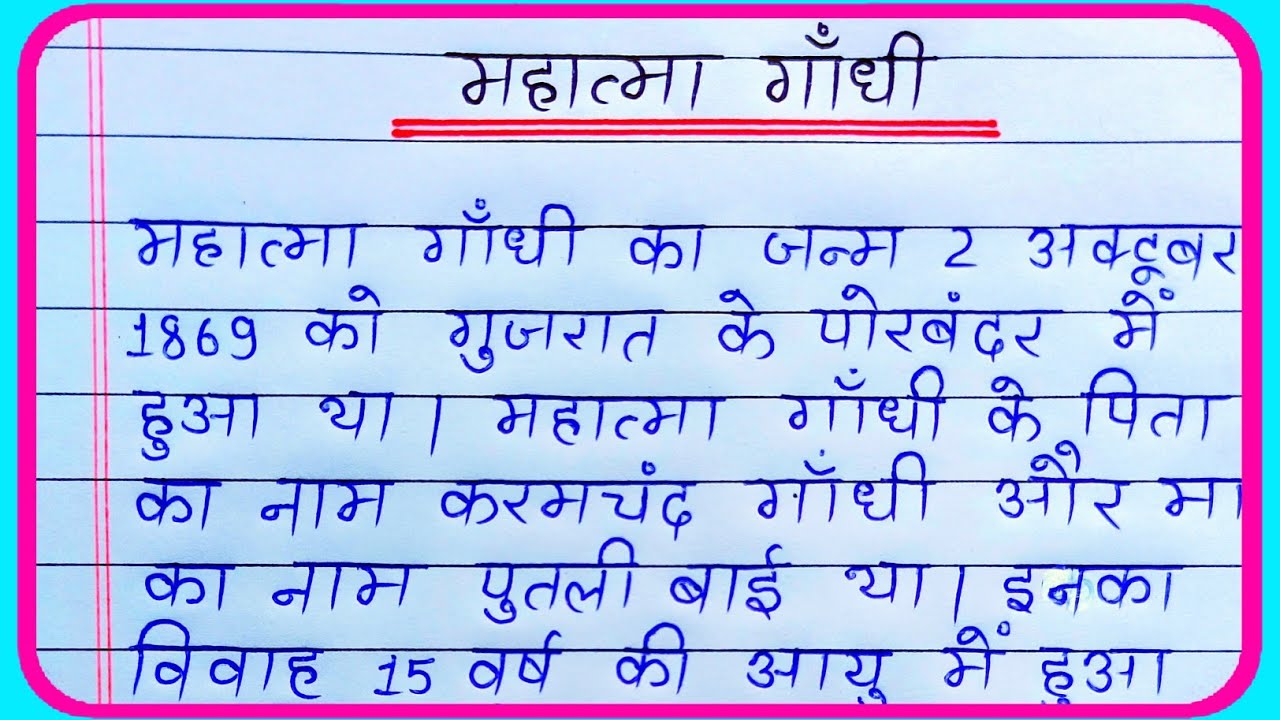 महात्मा गाँधी
महात्मा गाँधी का जन्म 2 अक्टूबर
1869 को गुजरात के पोरबंदर में
हुआ था। महात्मा गाँधी के पिता
का नाम करमचंद गाँधी और मा
का नाम पुतली बाई था। इनका
विवाह 15 वर्ष की आयु में हुआ